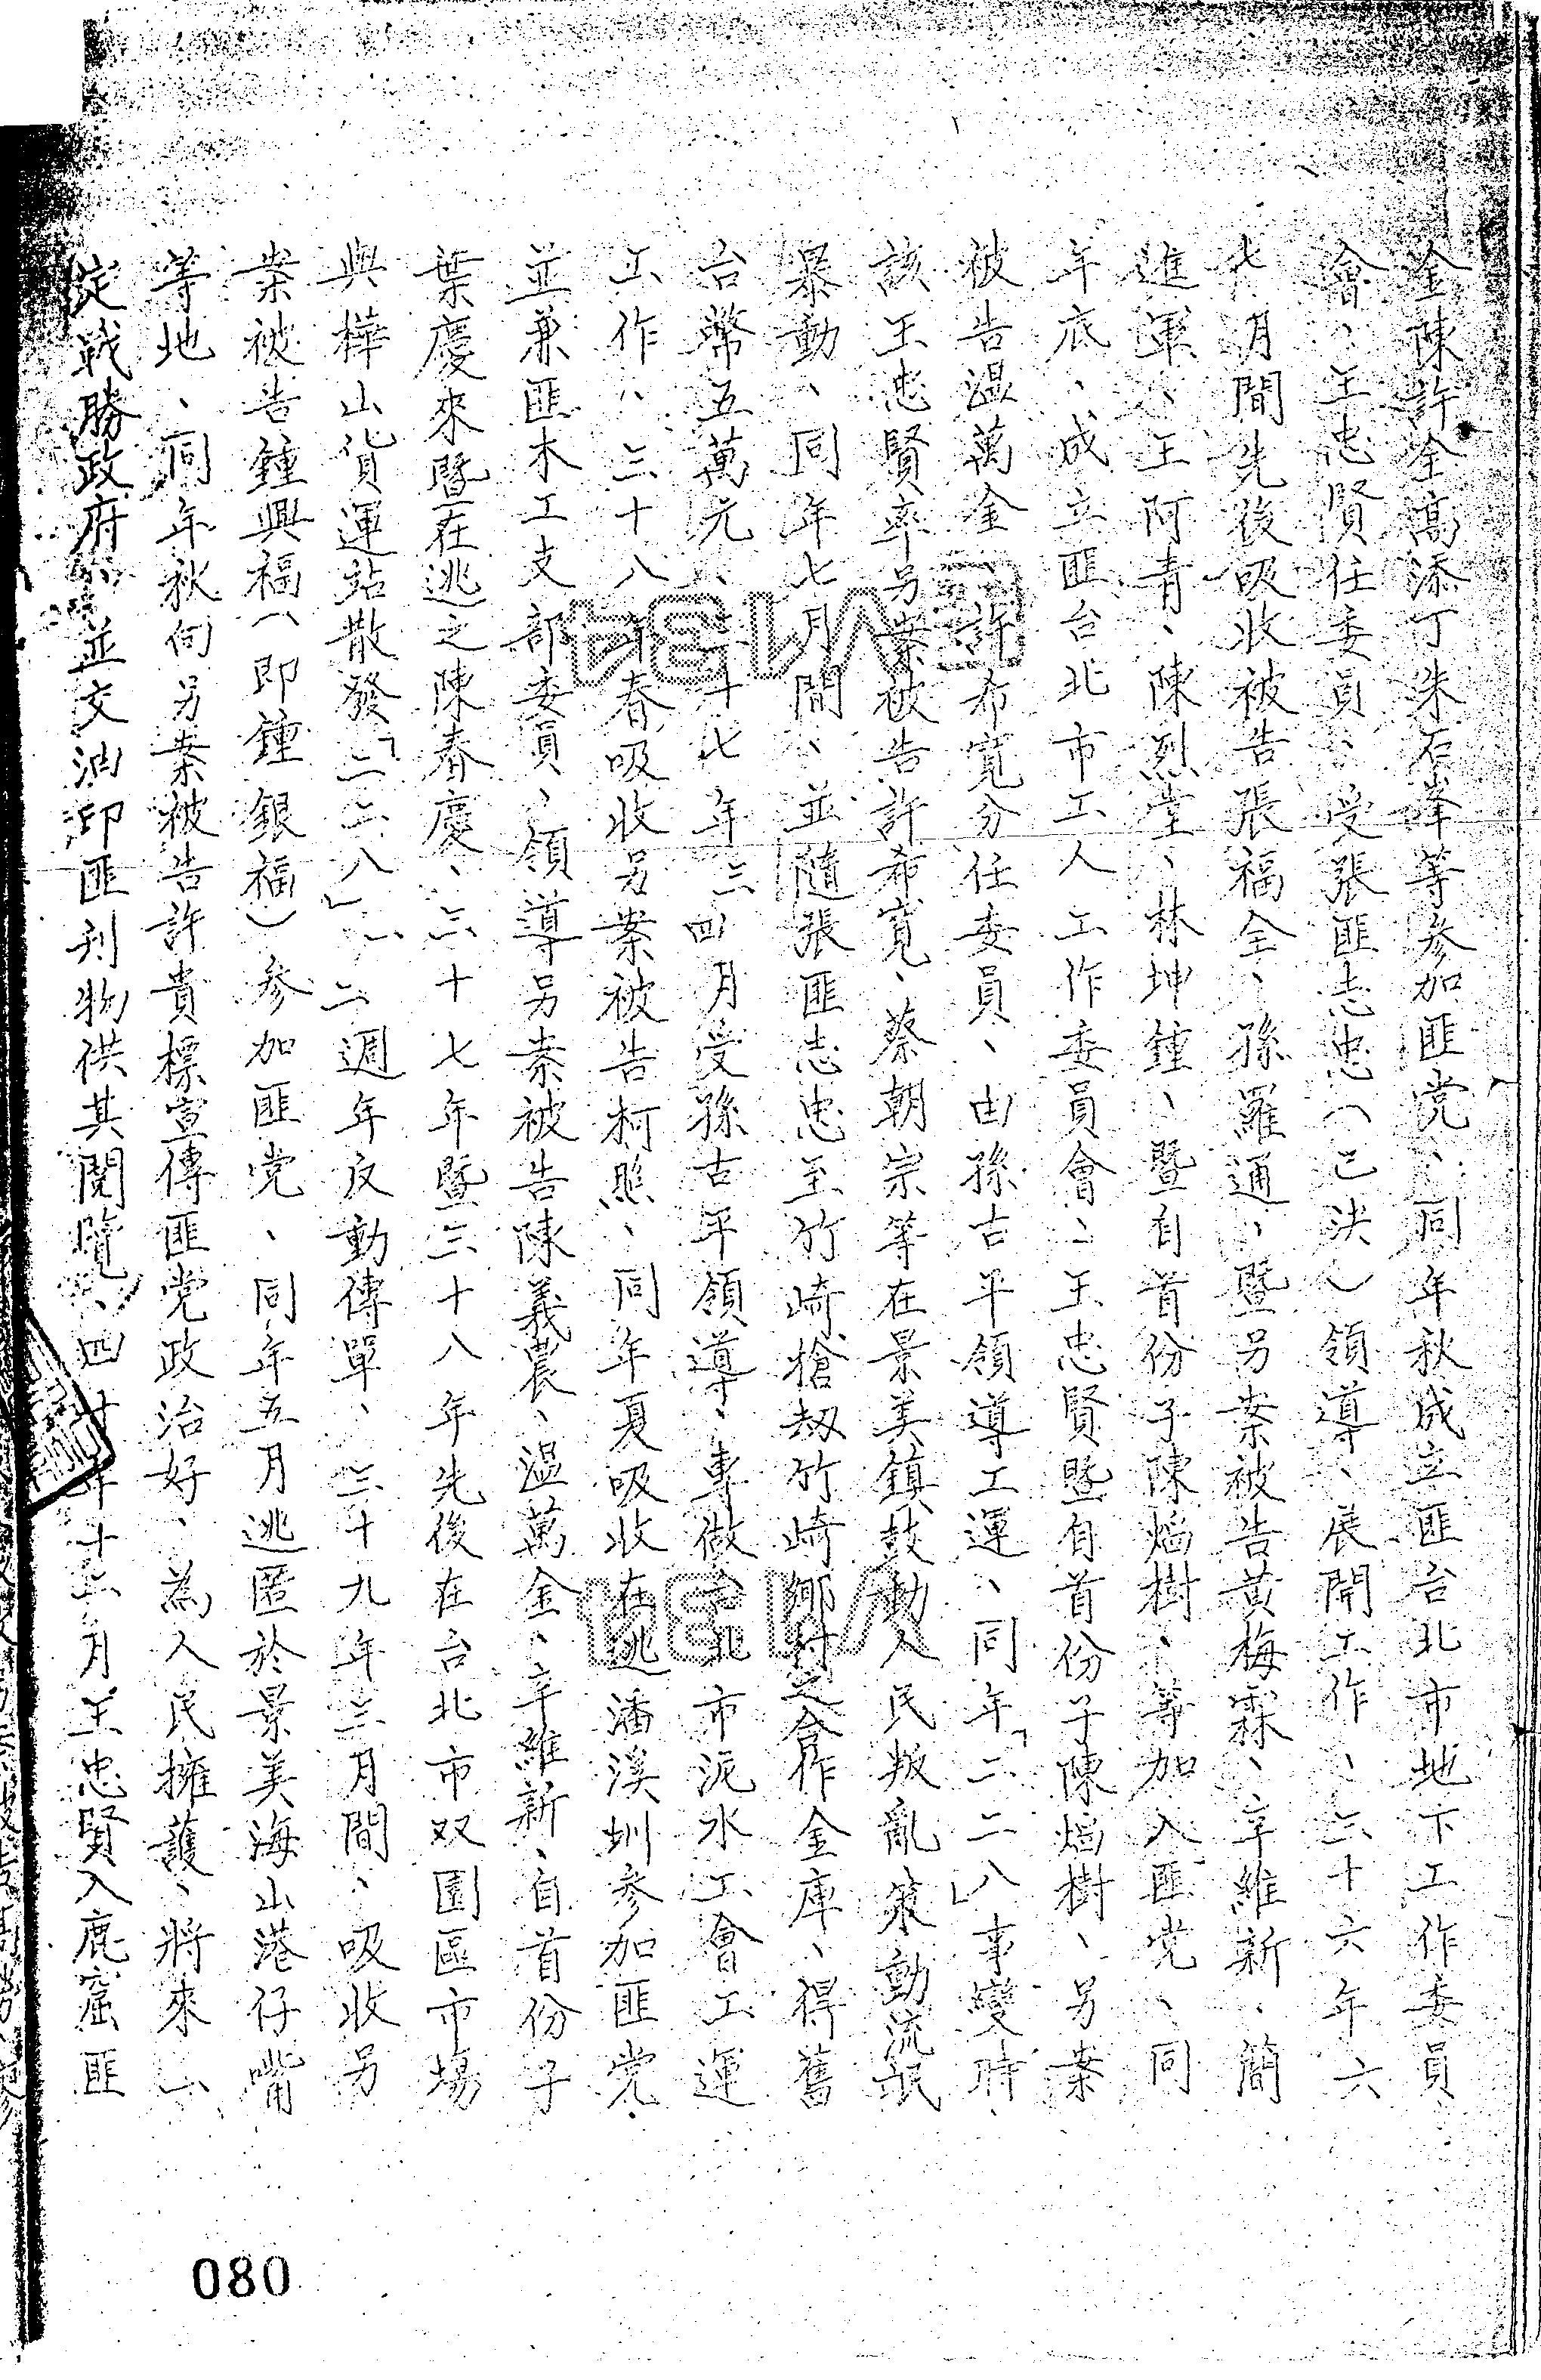 金陳許金高添丁朱石峯等參加匪党、同年秋成立匪台北市地下工作委員
會、王忠賢任委員、受張匪志忠（已决）領導、展開工作、三十六年六
七月間先後吸收被告張福全、孫羅通、暨另案被告黃梅霖、辛維新、簡
進軍、王阿青、陳烈堂、林坤鐘、暨自首份子陳焰樹、等加入匪党、同
年底、成立匪台北市工人工作委員會、王忠賢暨自首份子陳焰樹、另案
被告温萬金、許希寬分任委員、由孫古平領導工運、同年「二二八」事變時、
該王忠賢率另案被告許希寬、蔡朝宗等在景美鎮鼓動人民叛亂策動流氓
暴動、同年七月間、並隨張匪志忠至竹崎槍刼竹崎鄉村之合作金庫、得舊
台幣五萬元、三十七年三四月受孫古平領導、專做台北市泥水工會工運
工作、三十八年春吸收另案被告柯照、同年夏吸收在逃潘溪圳參加匪党、
並兼匪木工支部委員、領導另案被告陳義農、温萬金、辛維新、自首份子
葉慶來暨在逃之陳春慶、三十七年暨三十八年先後在台北市双園區市場
與樺山貨運站散發「二二八」一、二週年反動傳單、三十九年三月間、吸收另
案被告鍾興福（即鍾銀福）參加匪党、同年五月逃匿於景美海山港仔嘴
等地、同年秋向另案被告許貴標宣傳匪党政治好、為人民擁護、將來一
定戰勝政府、並交油印匪刊物供其閱覽、四十年十二月王忠賢入鹿窟匪
080